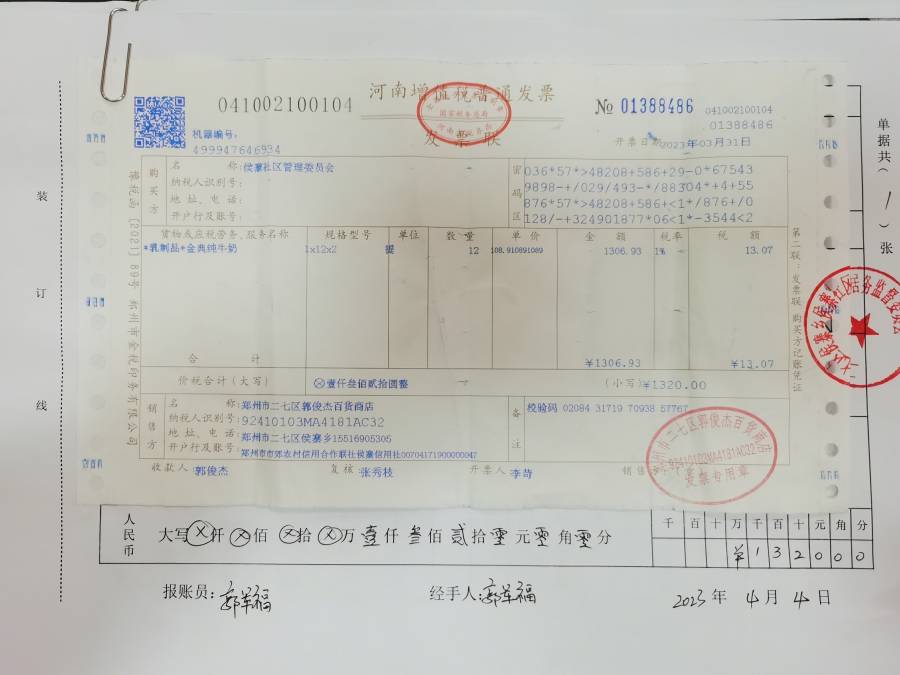 河南增值税普通发票
发票联
041002100104
№ 01388486
041002100104
01388486
机器编号:
499947646934
开票日期: 2023年03月31日
购买方
名 称: 侯寨社区管理委员会
纳税人识别号:
地 址、电 话:
开户行及账号:
密码区
036*57*>48208+586+29-0*67543
9898-+/029/493-*/88304*+4+55
876*57*>48208+586+<1*/876+/0
128/-+324901877*06<1*-3544<2
货物或应税劳务、服务名称 规格型号 单位 数量 单价 金额 税率 税额
*乳制品*金典纯牛奶 1x12x2 提 12 108.910891089 1306.93 1% 13.07
合 计 ¥1306.93 ¥13.07
价税合计(大写) ⊗壹仟叁佰贰拾圆整 (小写) ¥1320.00
销售方
名 称: 郑州市二七区郭俊杰百货商店
纳税人识别号: 92410103MA4181AC32
地 址、电 话: 郑州市二七区侯寨乡15516905305
开户行及账号: 郑州市市郊农村信用合作联社侯寨信用社00704171900000047
备注
校验码 02084 31719 70938 57767
收款人: 郭俊杰 复核: 张秀枝 开票人: 李苛
郑州市二七区郭俊杰百货商店
92410103MA4181AC32
发票专用章
国家税务总局
第二联:发票联 购买方记账凭证
单据共(1)张
装订线
人民币
大写⊗仟⊗佰⊗拾⊗万壹仟叁佰贰拾零元零角零分
千 百 十 万 千 百 十 元 角 分
¥ 1 3 2 0 0 0
报账员: 郭军福 经手人: 郭军福 2023年4月4日